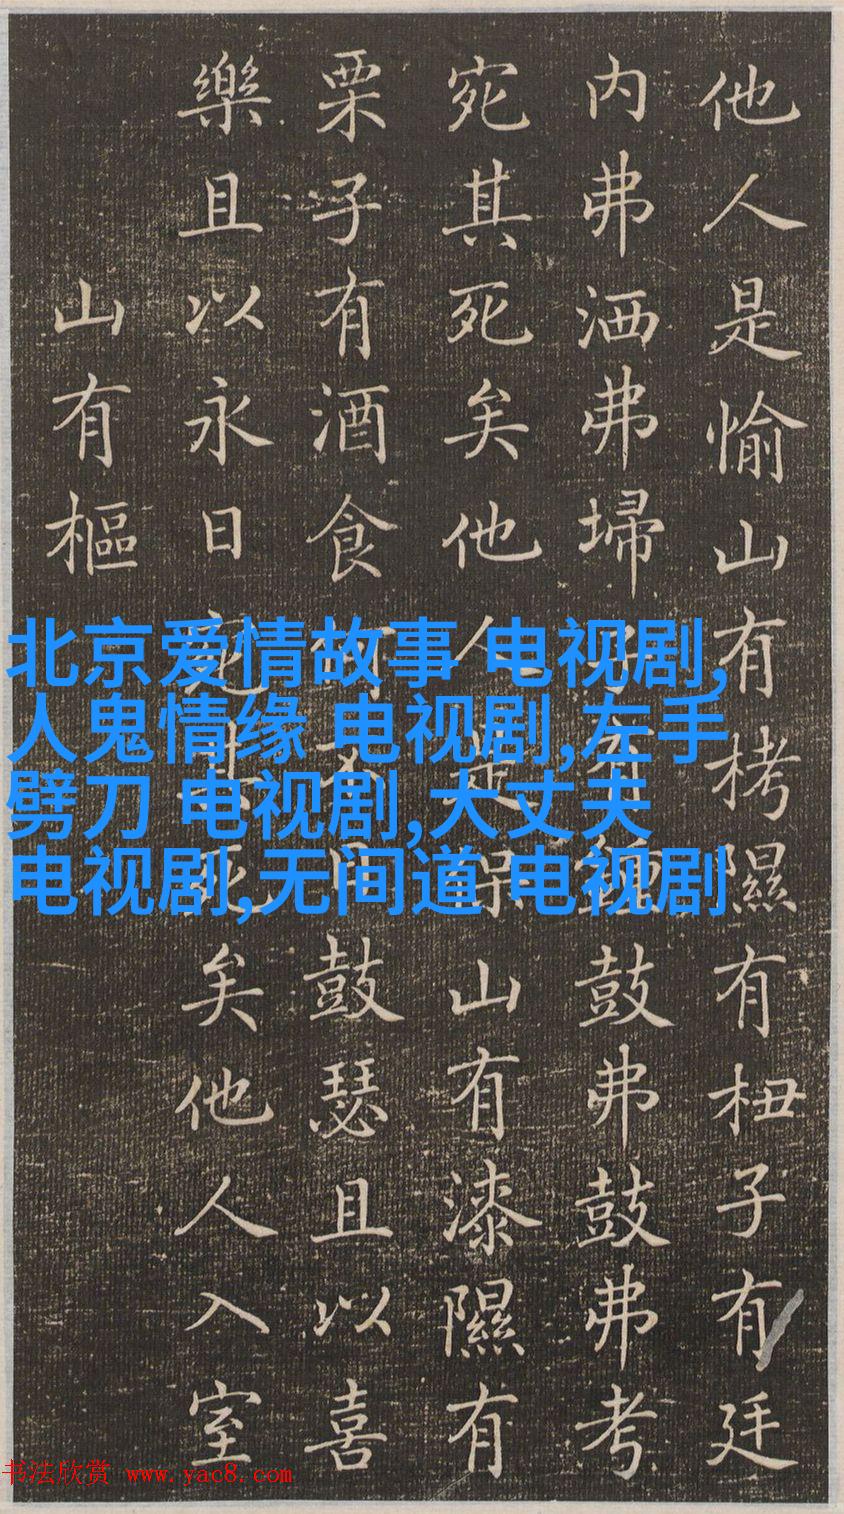 他人是愉山有栲隰有杻子有廷
内弗洒弗埽子有鍾鼓弗鼓弗考
宛其死矣他人是保山有漆隰有
栗子有酒食何不日鼓瑟且以喜
樂且以永日宛其死矣他人入室
山有樞
北京爱情故事 电视剧,
人鬼情缘 电视剧,左手
劈刀 电视剧,大丈夫
电视剧,无间道 电视剧
书法欣赏 www.yac8.com